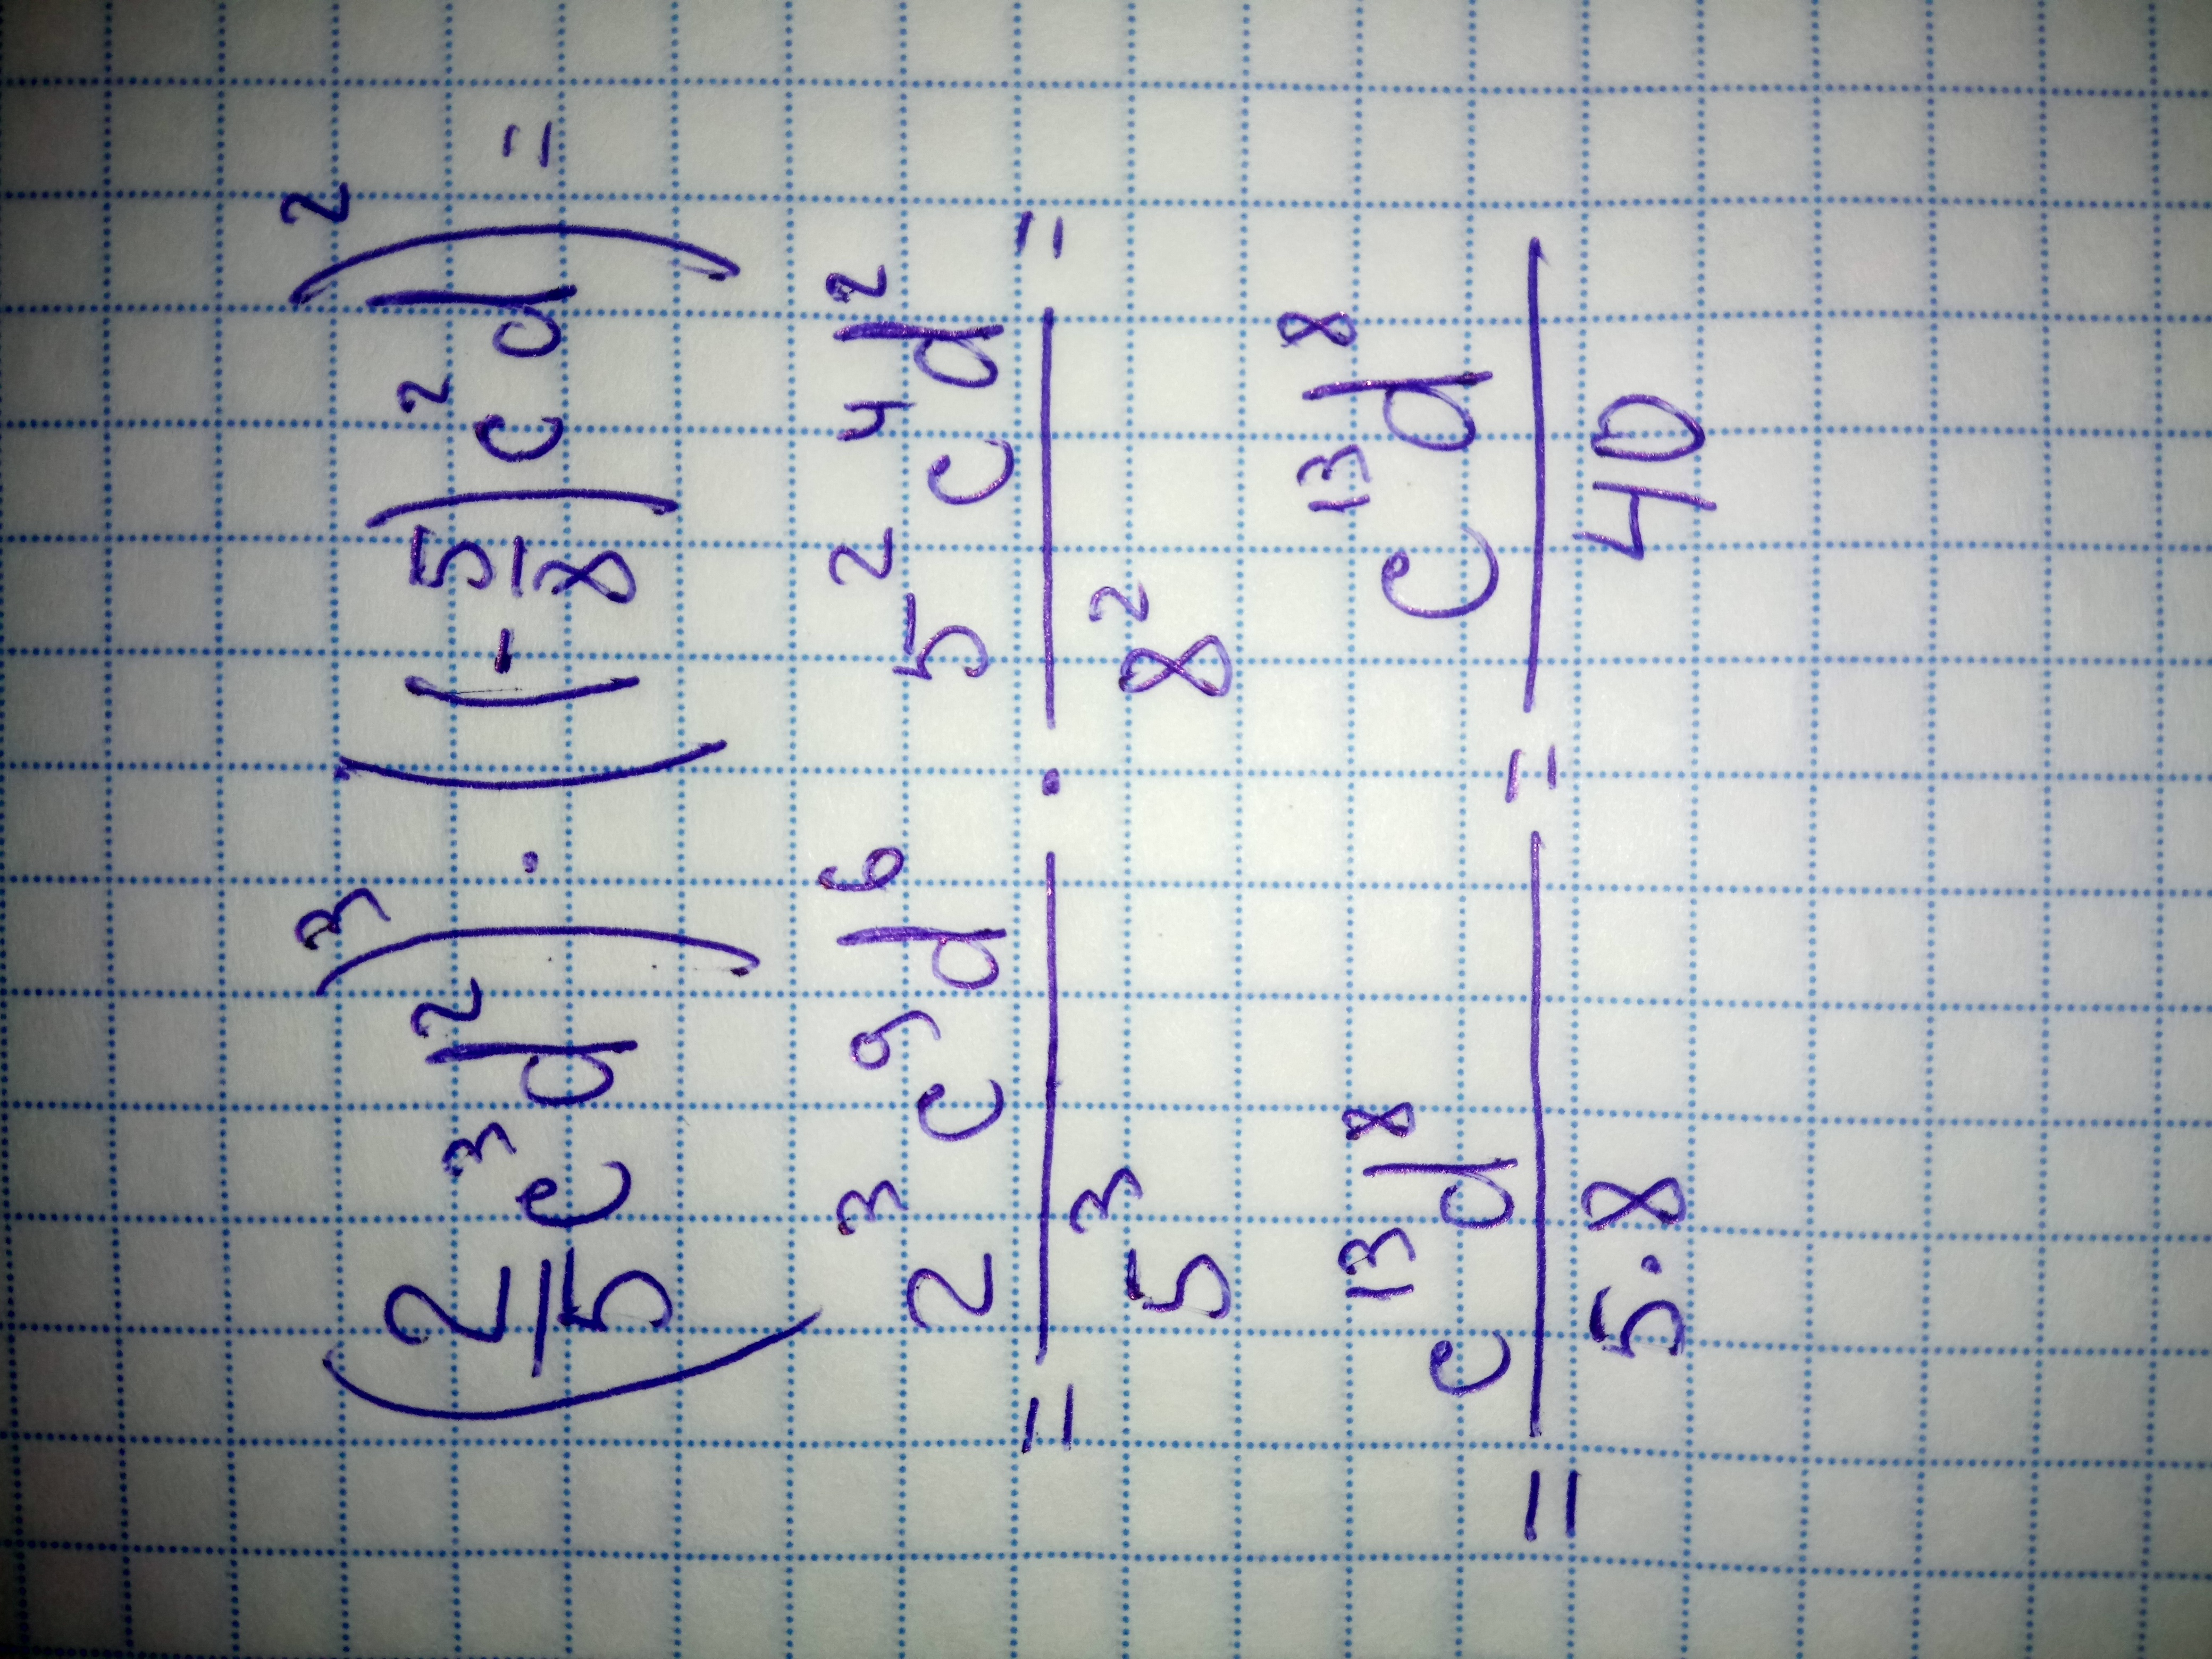 (2/5 c³d²)³ · ((-5/8)c²d)² =
= 2³c⁹d⁶/5³ · 5²c⁴d²/8² =
= c¹³d⁸/5·8 = c¹³d⁸/40